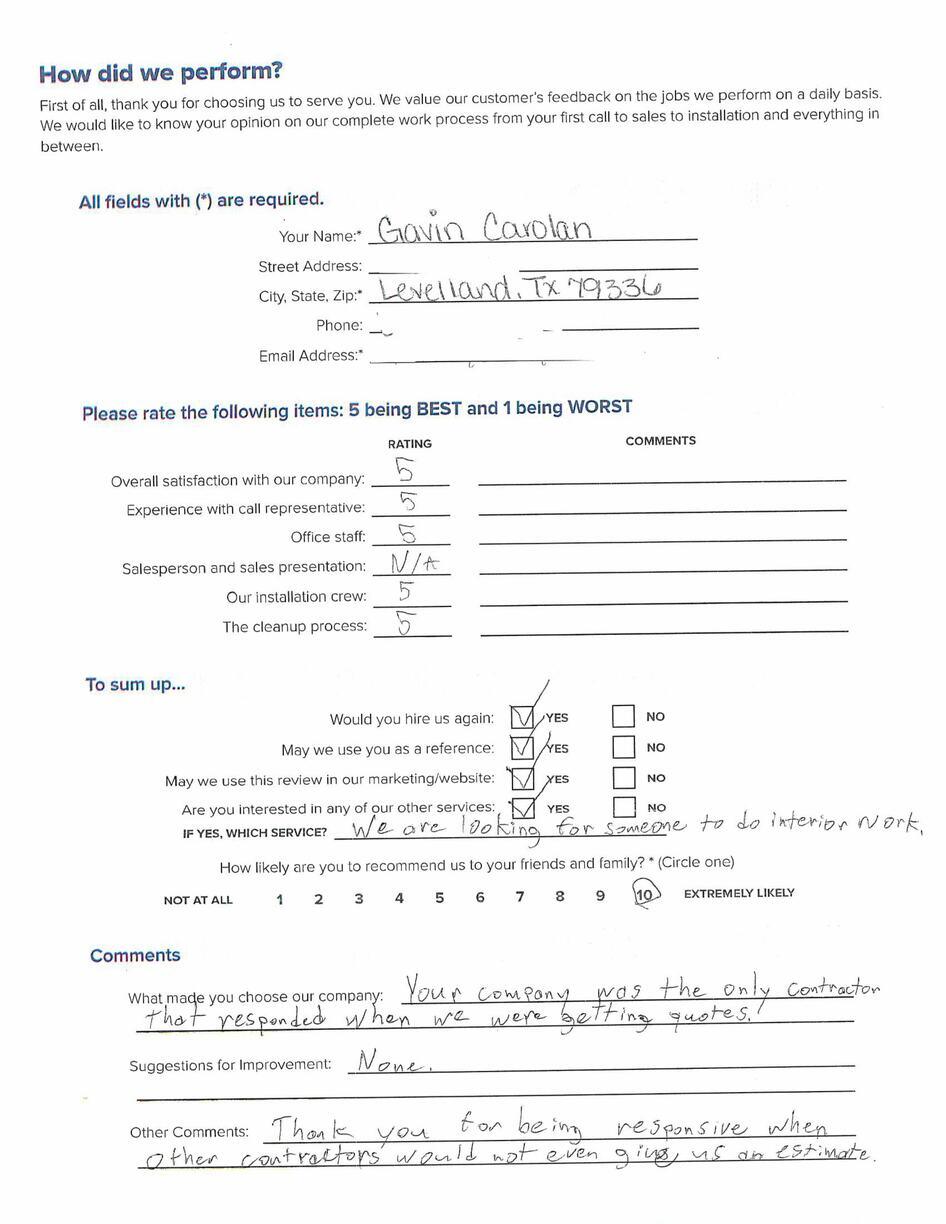 How did we perform?
First of all, thank you for choosing us to serve you. We value our customer's feedback on the jobs we perform on a daily basis.
We would like to know your opinion on our complete work process from your first call to sales to installation and everything in
between.
All fields with (*) are required.
Your Name:* Gavin Carolan
Street Address:
City, State, Zip:* Levelland, Tx 79336
Phone:
Email Address:*
Please rate the following items: 5 being BEST and 1 being WORST
RATING COMMENTS
Overall satisfaction with our company: 5
Experience with call representative: 5
Office staff: 5
Salesperson and sales presentation: N/A
Our installation crew: 5
The cleanup process: 5
To sum up...
Would you hire us again: YES NO
May we use you as a reference: YES NO
May we use this review in our marketing/website: YES NO
Are you interested in any of our other services: YES NO
IF YES, WHICH SERVICE? We are looking for someone to do interior work.
How likely are you to recommend us to your friends and family? * (Circle one)
NOT AT ALL 1 2 3 4 5 6 7 8 9 10 EXTREMELY LIKELY
Comments
What made you choose our company: Your company was the only contractor
that responded when we were getting quotes.
Suggestions for Improvement: None.
Other Comments: Thank you for being responsive when
other contractors would not even give us an estimate.